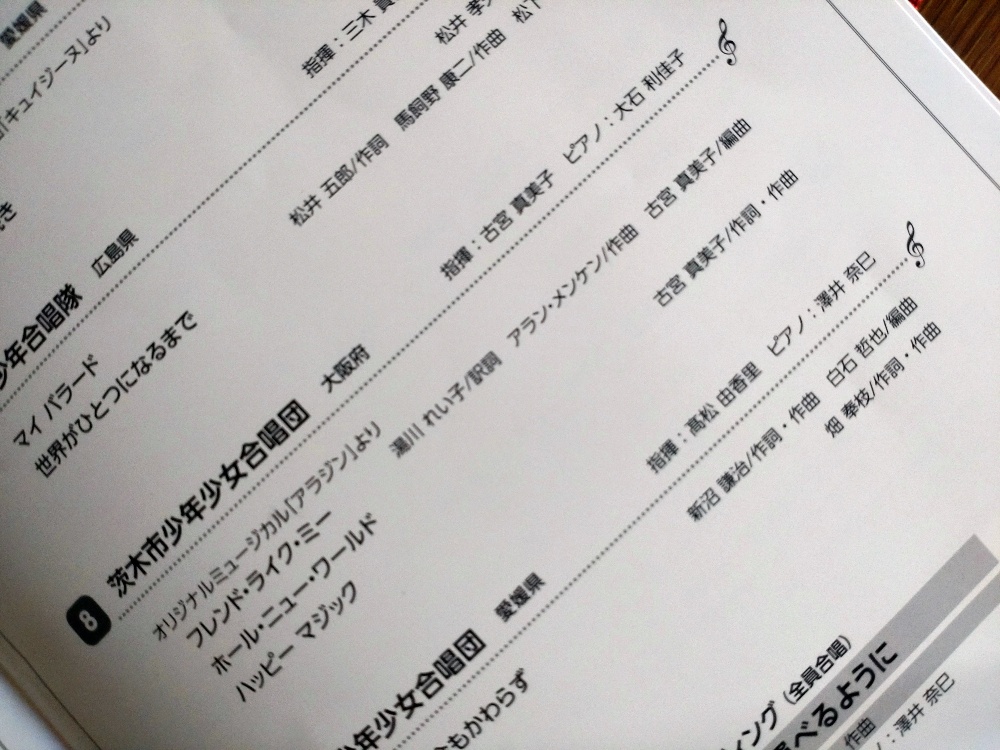 愛媛県
「キュイジーヌ」より
指揮：三木
松井
少年合唱隊 広島県
マイ バラード 松井 五郎/作詞 馬飼野 康二/作曲 松下
世界がひとつになるまで
指揮：古宮 真美子 ピアノ：大石 利佳子
8 茨木市少年少女合唱団 大阪府
オリジナルミュージカル「アラジン」より
フレンド・ライク・ミー 湯川 れい子/訳詞 アラン・メンケン/作曲 古宮 真美子/編曲
ホール・ニュー・ワールド
ハッピー マジック 古宮 真美子/作詞・作曲
指揮：髙松 由香里 ピアノ：澤井 奈巳
少年少女合唱団 愛媛県
新沼 謙治/作詞・作曲 白石 哲也/編曲
もかわらず 畑 奉枝/作詞・作曲
ィング（全員合唱）
べるように
作曲
：澤井 奈巳